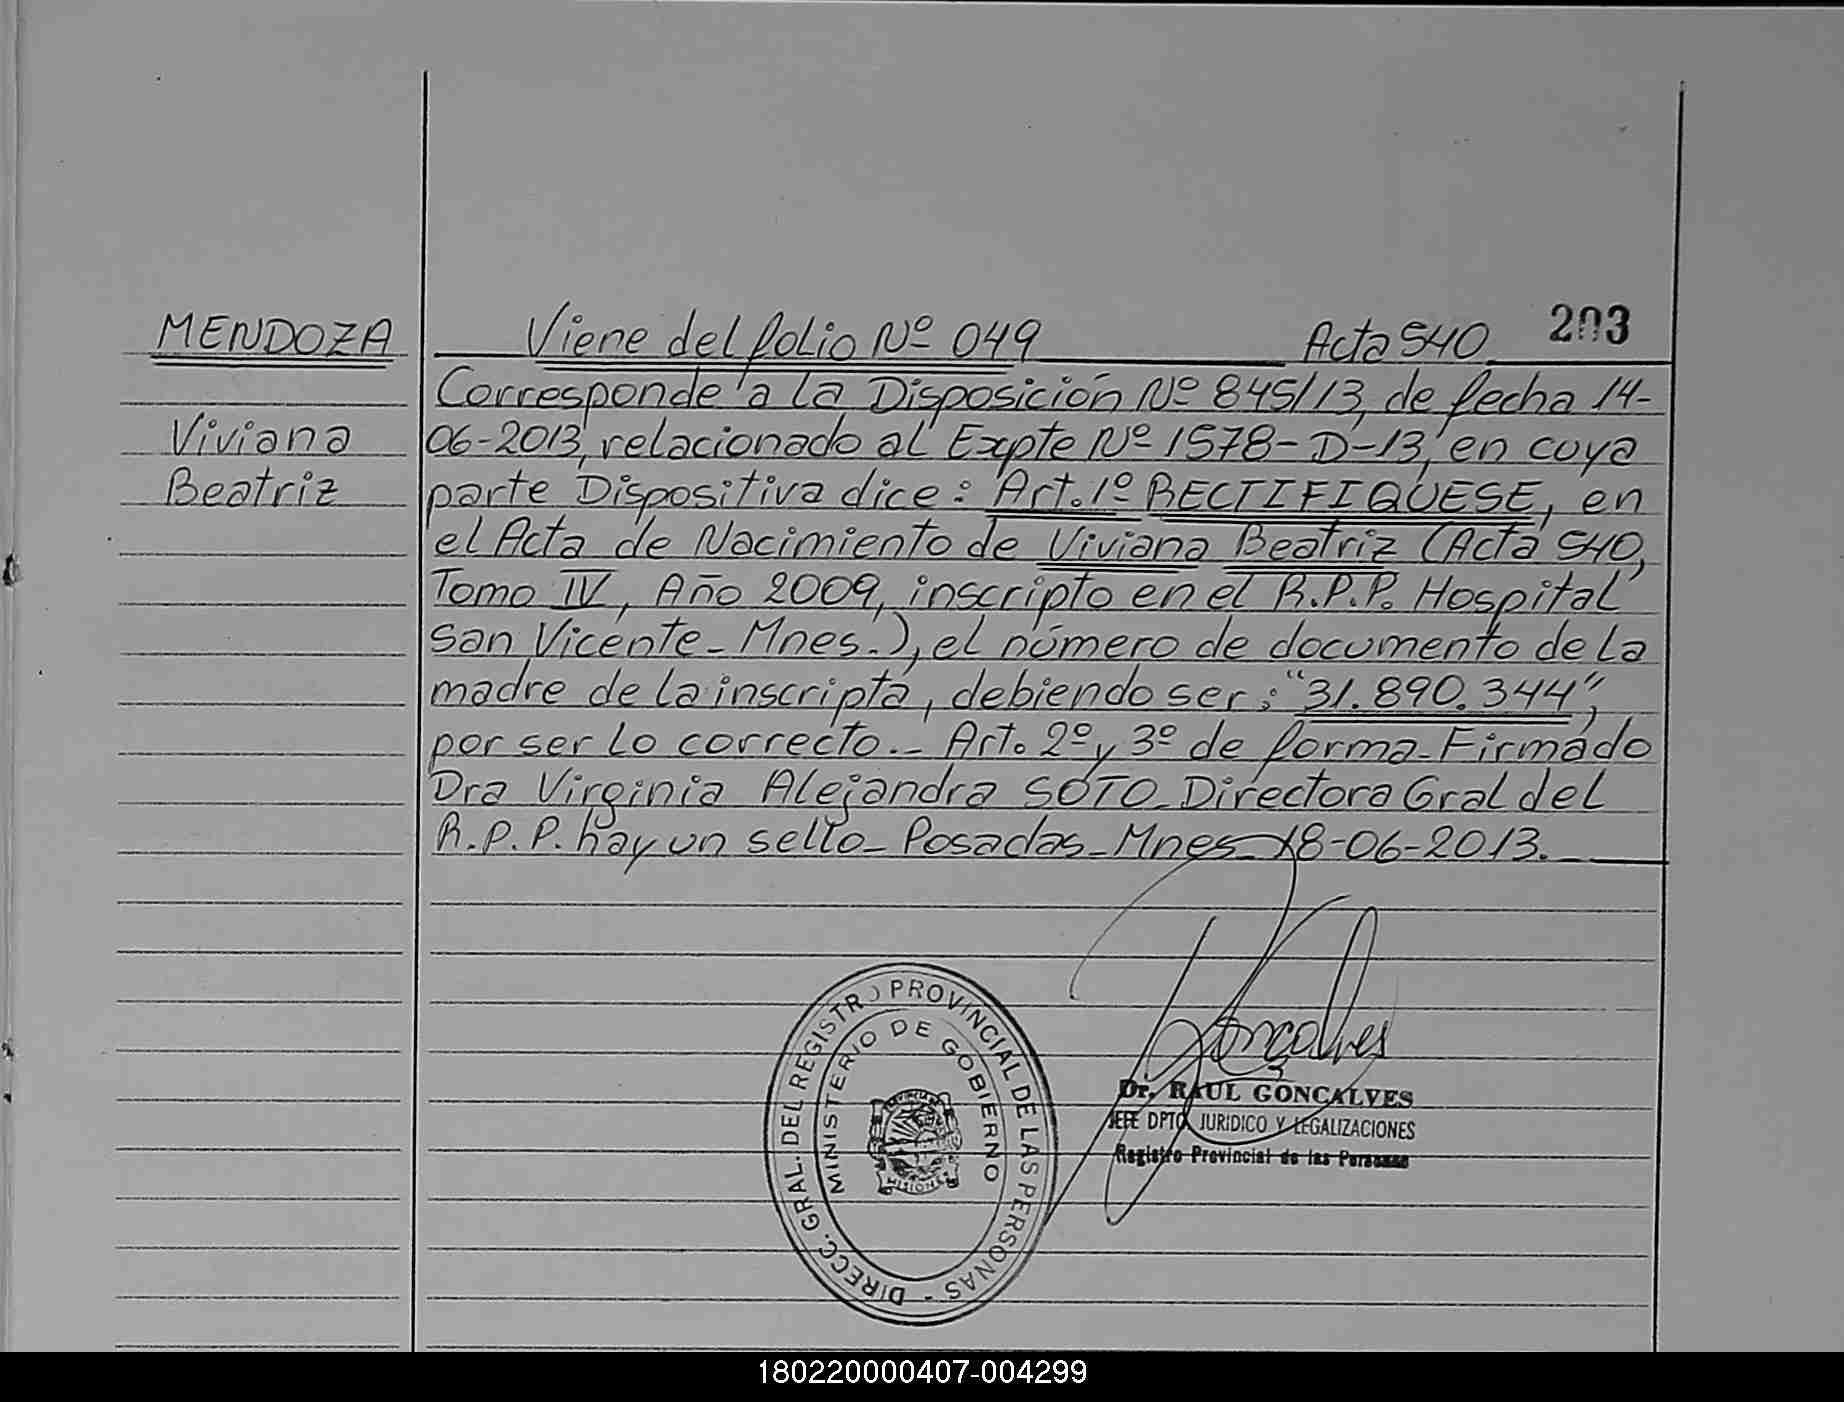 MENDOZA
Viviana
Beatriz
203
Viene del folio Nº 049 Acta 540
Corresponde a la Disposición Nº 845/13, de fecha 14-
06-2013, relacionado al Expte Nº 1578-D-13, en cuya
parte Dispositiva dice: Art. 1º RECTIFIQUESE, en
el Acta de Nacimiento de Viviana Beatriz (Acta 540,
Tomo IV, Año 2009, inscripto en el R.P.P. Hospital
San Vicente - Mnes.), el número de documento de la
madre de la inscripta, debiendo ser: "31.890.344",
por ser lo correcto.- Art. 2º y 3º de forma - Firmado
Dra Virginia Alejandra SOTO - Directora Gral del
R.P.P. hay un sello - Posadas - Mnes - 18-06-2013.
DIRECC. GRAL. DEL REGISTRO PROVINCIAL DE LAS PERSONAS -
MINISTERIO DE GOBIERNO
MISIONES
Gonçalves
Dr. RAUL GONÇALVES
JEFE DPTO JURIDICO Y LEGALIZACIONES
Registro Provincial de las Personas
180220000407-004299